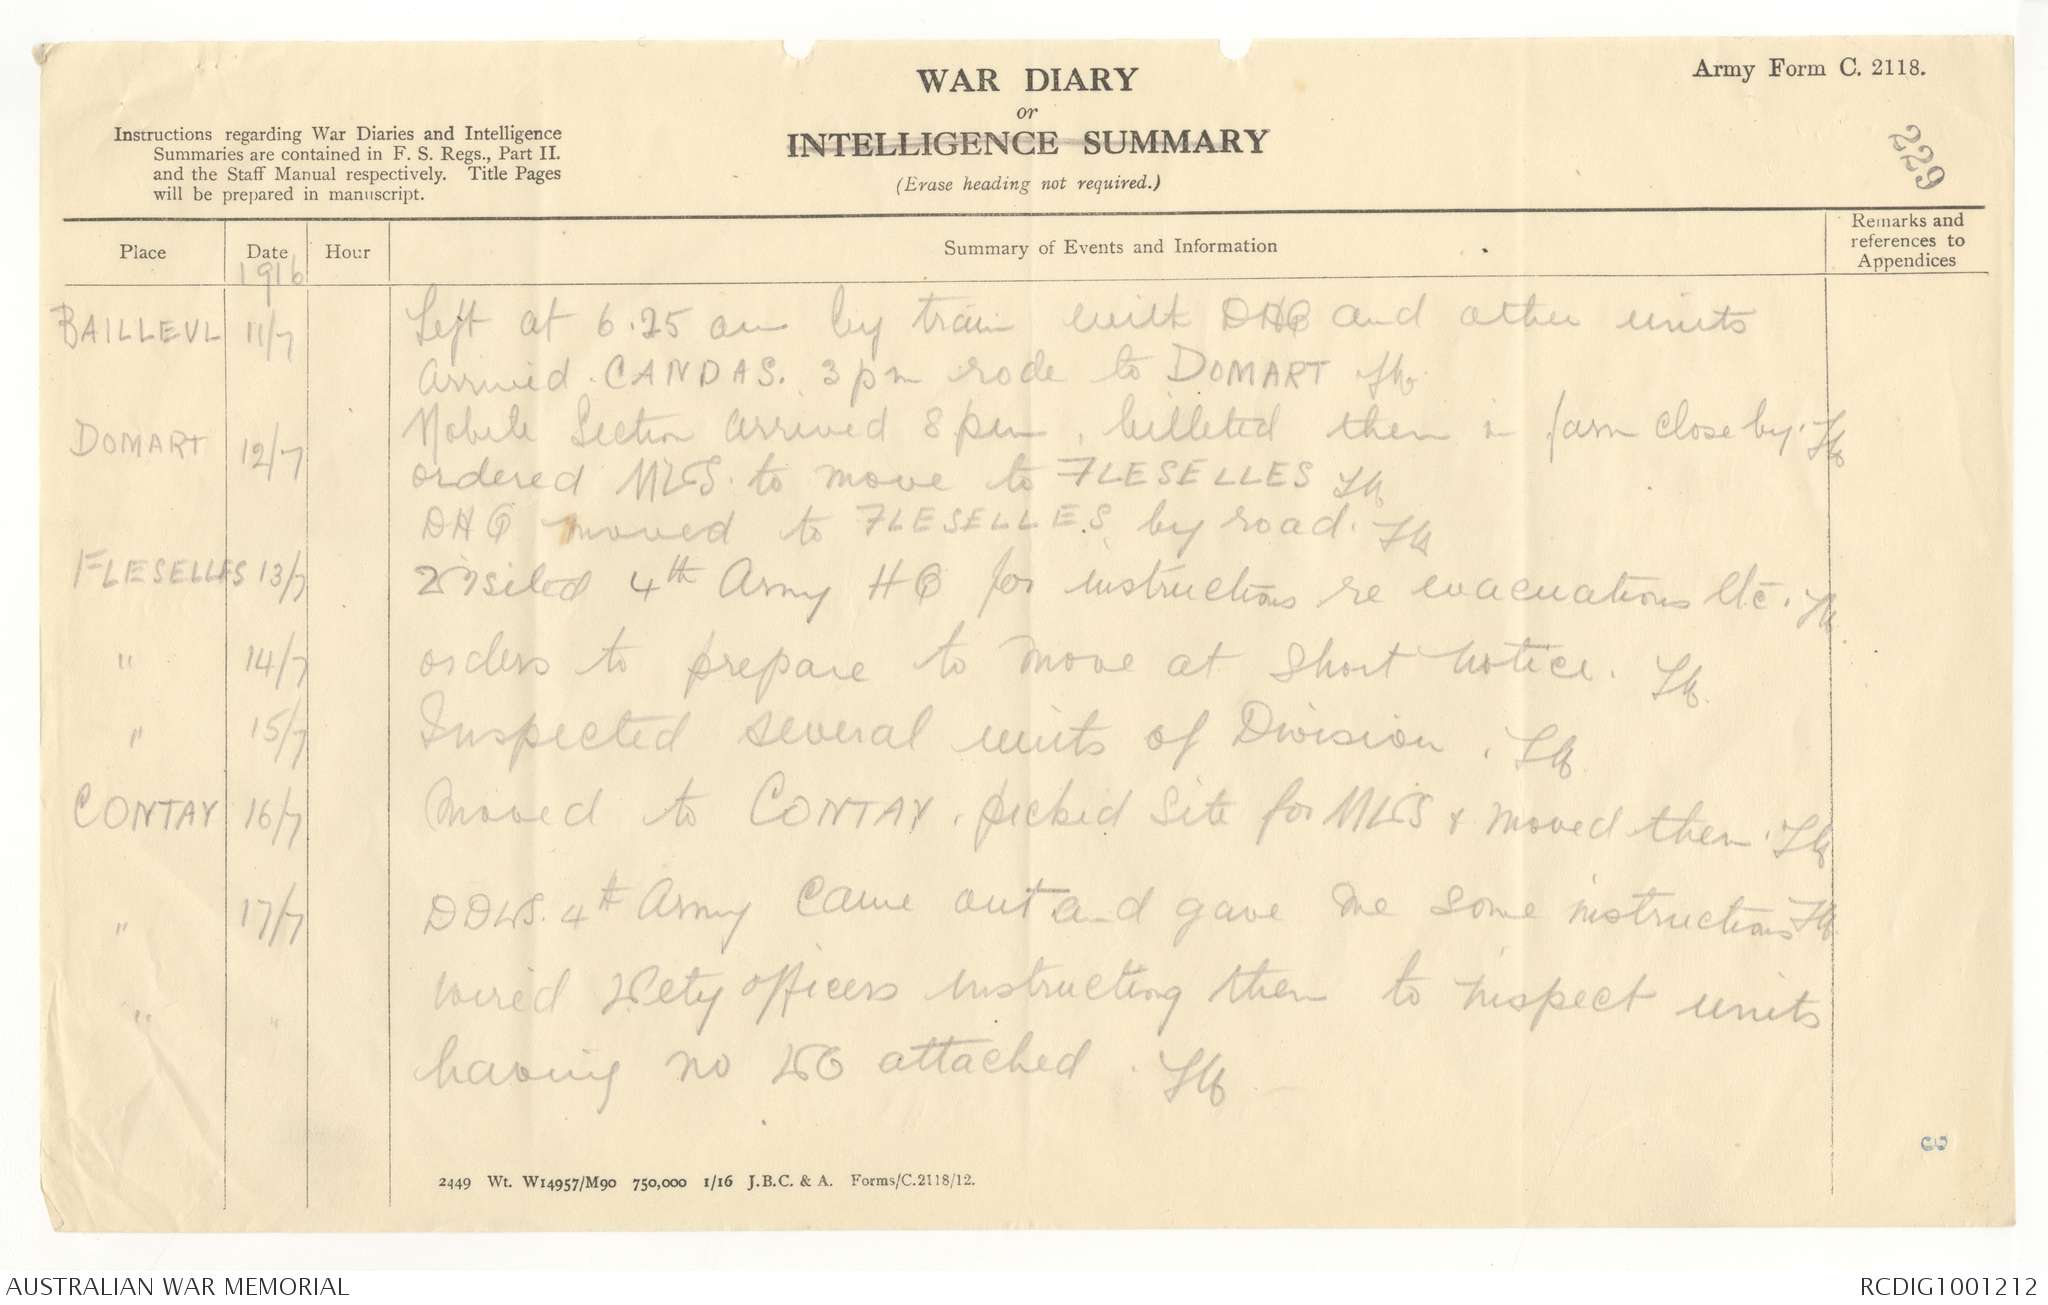 Army Form C. 2118.
WAR DIARY
or
INTELLIGENCE SUMMARY
(Erase heading not required.)
Instructions regarding War Diaries and Intelligence
Summaries are contained in F. S. Regs., Part II.
and the Staff Manual respectively. Title Pages
will be prepared in manuscript.
229
Place Date Hour Summary of Events and Information Remarks and references to Appendices
1916
BAILLEUL 11/7 Left at 6.25 am by train with DHQ and other units
arrived CANDAS. 3 pm rode to DOMART
DOMART 12/7 Mobile Section arrived 8 pm, billeted them in farm close by.
ordered MVS. to move to FLESELLES
DHQ moved to FLESELLES by road.
FLESELLES 13/7 Visited 4th Army HQ for instructions re evacuations etc.
" 14/7 orders to prepare to move at short notice.
" 15/7 Inspected several units of Division.
CONTAY 16/7 Moved to CONTAY. picked site for MVS & moved them.
" 17/7 DDVS. 4th Army came out and gave me some instructions
" " wired Vety officers instructing them to inspect units
having no VO attached.
2449 Wt. W14957/M90 750,000 1/16 J.B.C. & A. Forms/C.2118/12.
AUSTRALIAN WAR MEMORIAL
RCDIG1001212